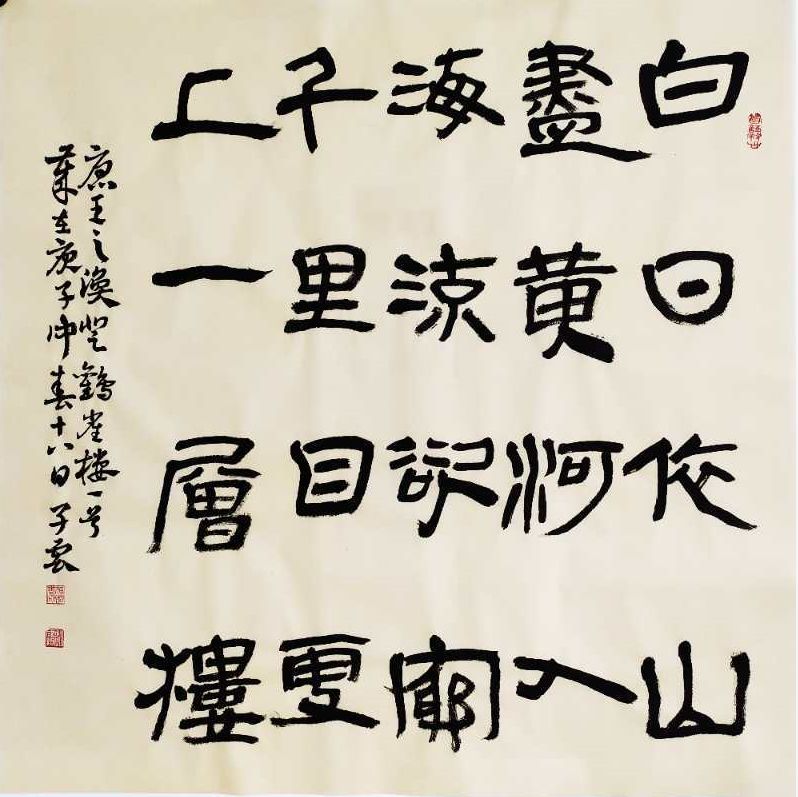 白日依山
盡黄河入
海流欲窮
千里目更
上一層樓
唐王之渙登鸛雀樓一首
歲在庚子仲春十八日子雲